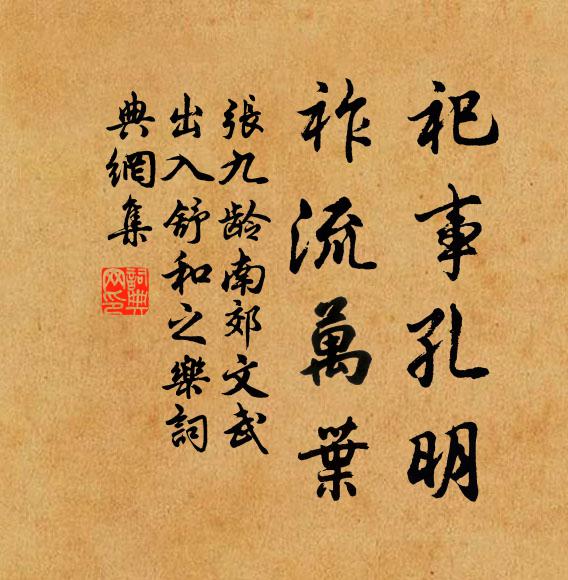 祀事孔明
祚流萬葉
張九龄南郊文武
出入舒和之樂詞
典網集
詞典
网印